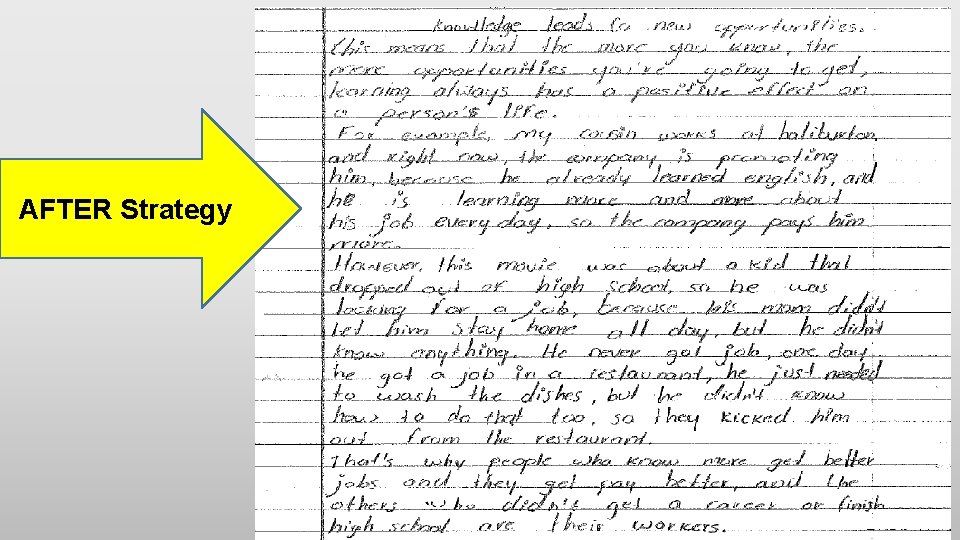 AFTER Strategy
Knowledge leads to new opportunities.
this means that the more you know, the
more opportunities you're going to get,
learning always has a positive effect on
a person's life.
For example, my cousin works at haliburton,
and right now, the company is promoting
him, because he already learned english, and
he is learning more and more about
his job every day, so the company pays him
more.
However, this movie was about a kid that
dropped out of high school, so he was
looking for a job, because his mom didn't
let him stay home all day, but he didn't
know anything. He never got job, one day
he got a job in a restaurant, he just needed
to wash the dishes, but he didn't know
how to do that too, so they kicked him
out from the restaurant.
That's why people who know more get better
jobs and they get pay better, and the
others who didn't get a career or finish
high school are their workers.